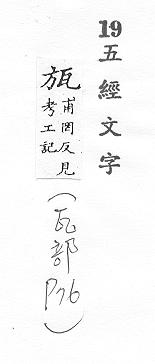 19五經文字
旊
甫罔反見
考工記
(瓦部P76)